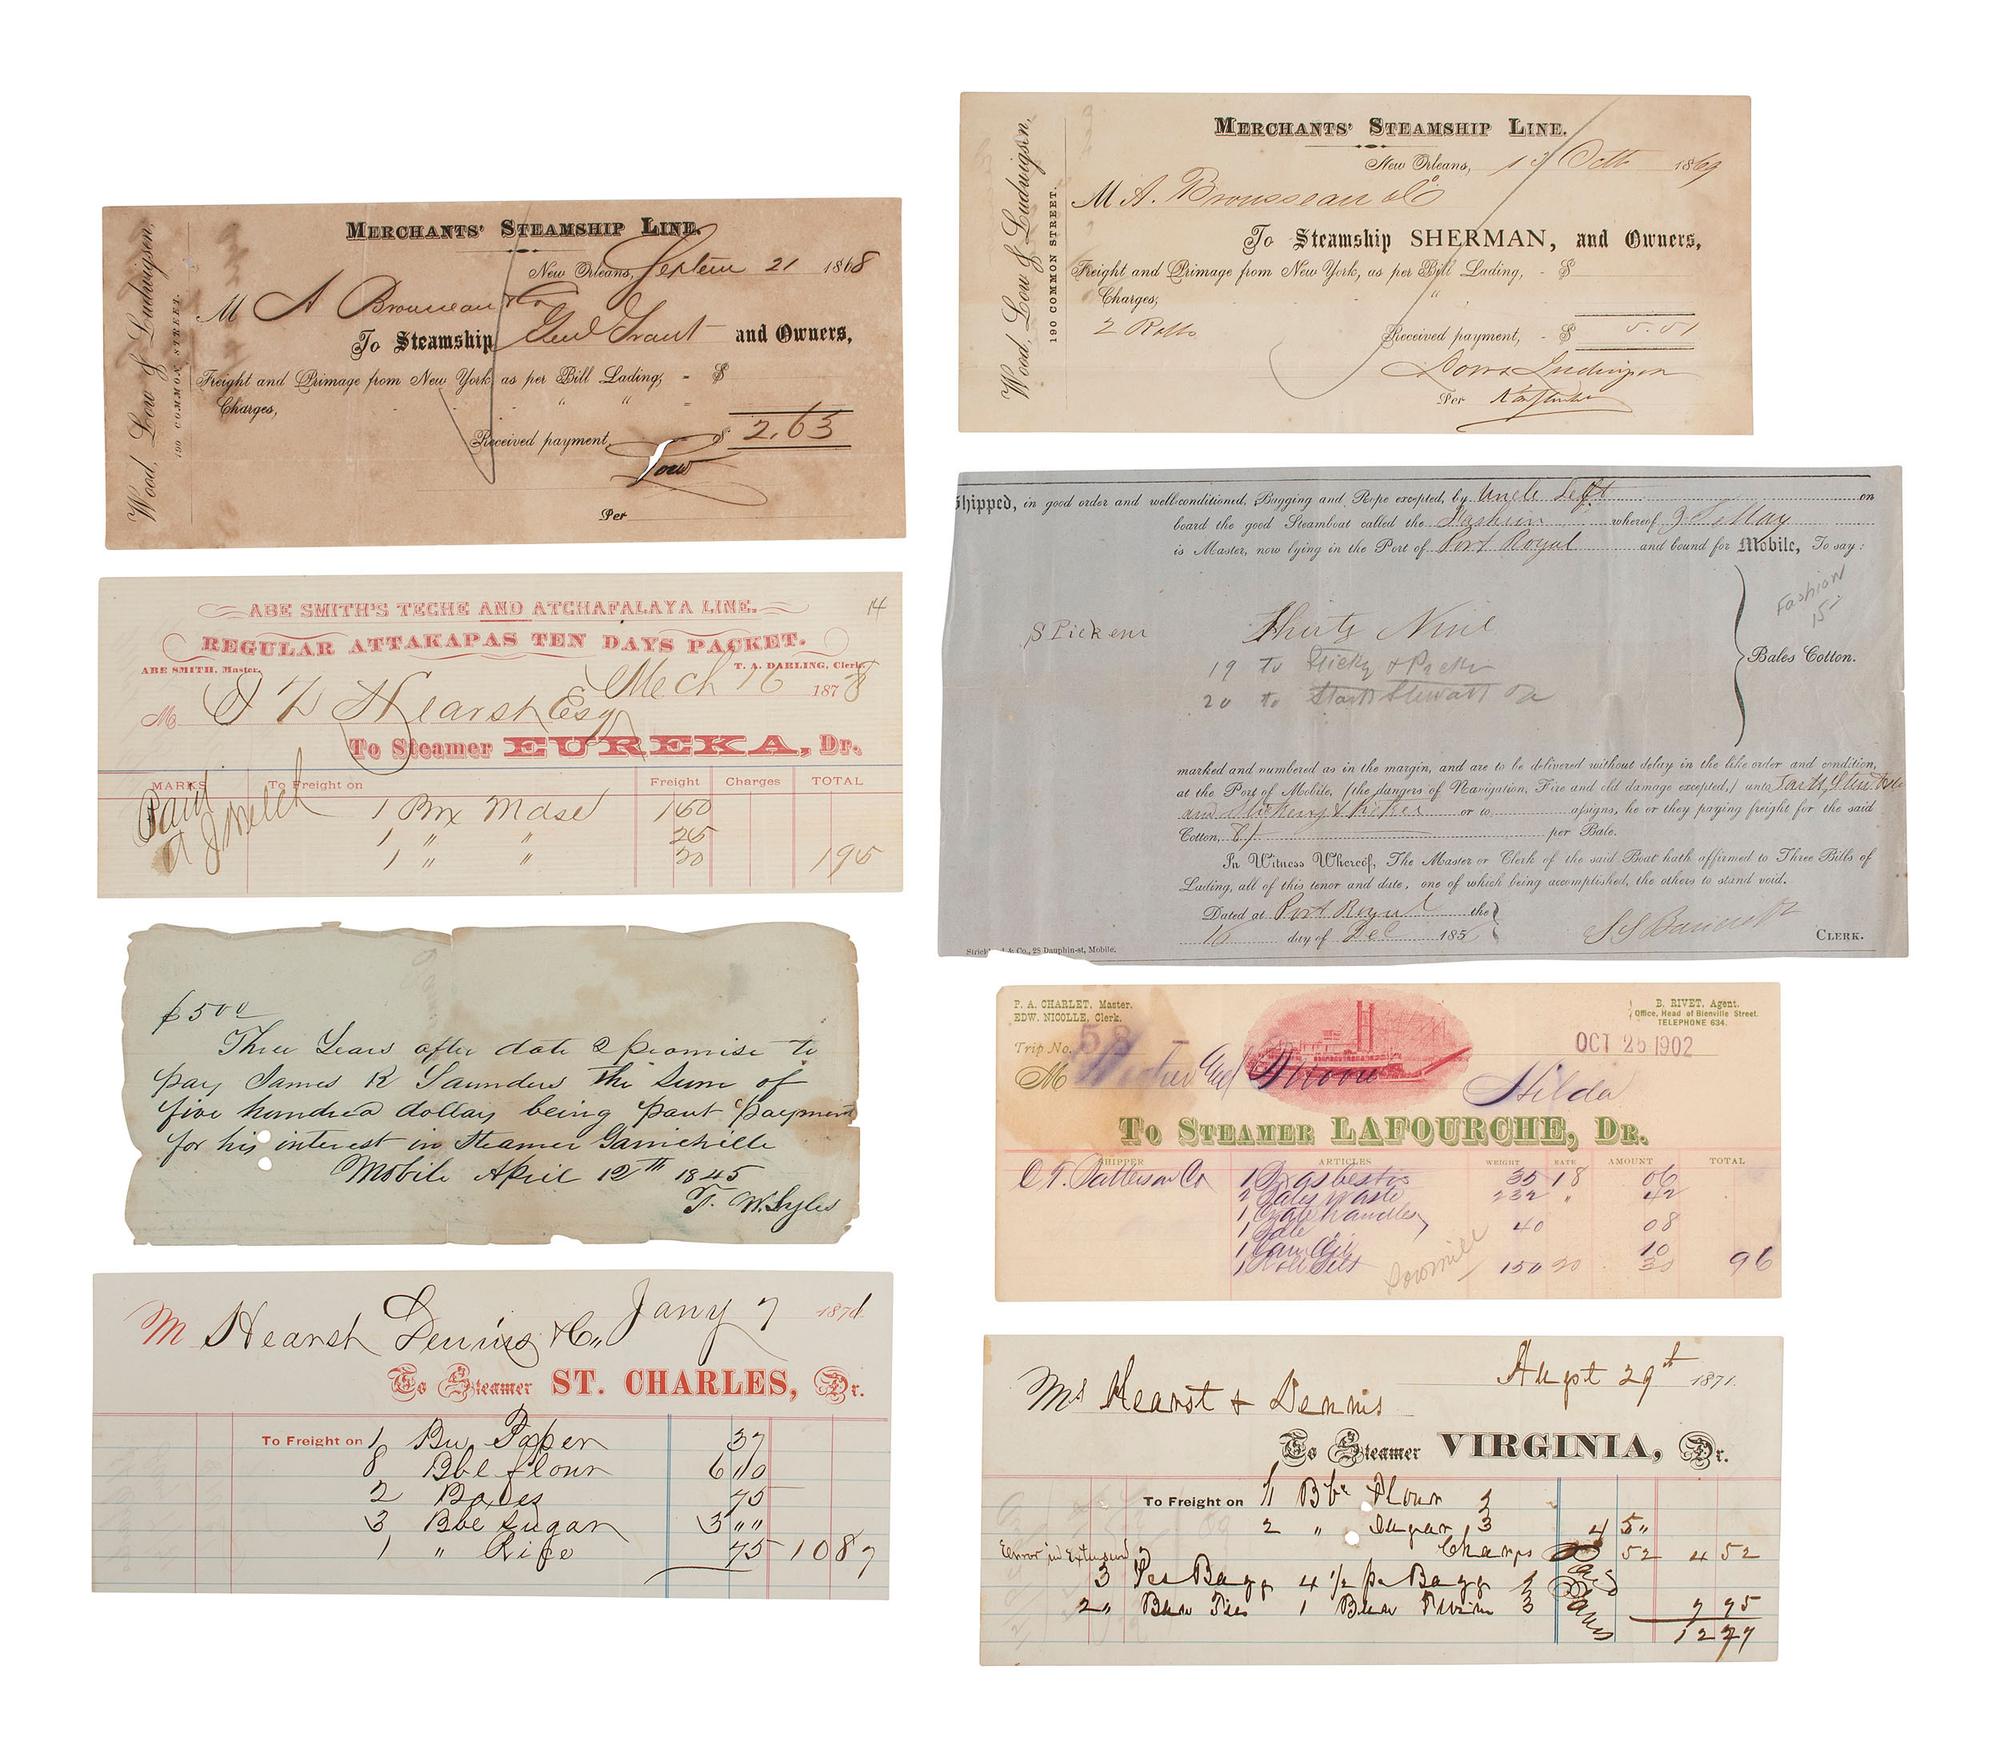 MERCHANTS' STEAMSHIP LINE.
New Orleans, Septem 21 1868
M A Brousseau & Co
To Steamship Genl Grant and Owners,
Freight and Primage from New York, as per Bill Lading, - $
Charges, " " "
Received payment, $ 2.63
Low
Per
Wood, Low & Ludwigsen,
190 COMMON STREET.
ABE SMITH'S TECHE AND ATCHAFALAYA LINE.
14
REGULAR ATTAKAPAS TEN DAYS PACKET.
ABE SMITH, Master. T. A. DARLING, Clerk.
Mech 16 1878
M Hearsh Esq
To Steamer EUREKA, Dr.
MARKS To Freight on Freight Charges TOTAL
1 Bx Mdse 150
1 " " 25
1 " " 20 195
Paid
$500
Three Years after date I promise to
pay James K Saunders the sum of
five hundred dollars being part payment
for his interest in Steamer Gainesville
Mobile April 12th 1845
T. W. Sykes
Jany 7 187
M Hearsh Dennis & Co,,
To Steamer ST. CHARLES, Dr.
To Freight on 1 Bu Paper 37
8 Bbl flour 6 00
2 Boxes 75
3 Bbl sugar 3 " "
1 " Rice 75 10 87
MERCHANTS' STEAMSHIP LINE.
New Orleans, 13 Octb 1869
M A. Brousseau & Co
To Steamship SHERMAN, and Owners,
Freight and Primage from New York, as per Bill Lading, - $
Charges, "
2 Rolls Received payment, - $ 5.51
Per
Wood, Low & Ludwigsen,
190 COMMON STREET.
Shipped, in good order and well-conditioned, Bagging and Rope excepted, by Uncle Jeff on
board the good Steamboat called the Fashion whereof J S May
is Master, now lying in the Port of Port Royal and bound for Mobile, To say:
Fashion
15-
S Pickens Thirty Nine
19 to
20 to Stewart
Bales Cotton.
marked and numbered as in the margin, and are to be delivered without delay in the like order and condition,
at the Port of Mobile, (the dangers of Navigation, Fire and old damage excepted,) unto
and or to assigns, he or they paying freight for the said
Cotton, per Bale.
In Witness Whereof, The Master or Clerk of the said Boat hath affirmed to Three Bills of
Lading, all of this tenor and date, one of which being accomplished, the others to stand void.
Dated at Port Royal the
16 day of Dec 185
CLERK.
& Co., 28 Dauphin-st, Mobile.
P. A. CHARLET, Master.
EDW. NICOLLE, Clerk.
B. RIVET, Agent.
Office, Head of Bienville Street.
TELEPHONE 634.
Trip No. 58 OCT 25 1902
M Moore Hilda
TO STEAMER LAFOURCHE, DR.
SHIPPER ARTICLES WEIGHT RATE AMOUNT TOTAL
C. T. Patterson Co 1 Bx asbestos 35 18 06
2 Bales waste 232 " 42
1 Crate handles
1 Bale 40 08
1 Can Oil 10
1 Roll Belt 150 20 30 96
Sawmill
Augst 29th 1871.
Ms Hearst & Dennis
To Steamer VIRGINIA, Dr.
To Freight on 11 Bbl Flour
2 " Sugar 3 4 5"
Charges 52 4 52
Error in Extension
3 Pcs Bagg 4 1/2 pc Bagg
2 " Bdls Ties 1 Bdl Twine 3 7 75
12 27